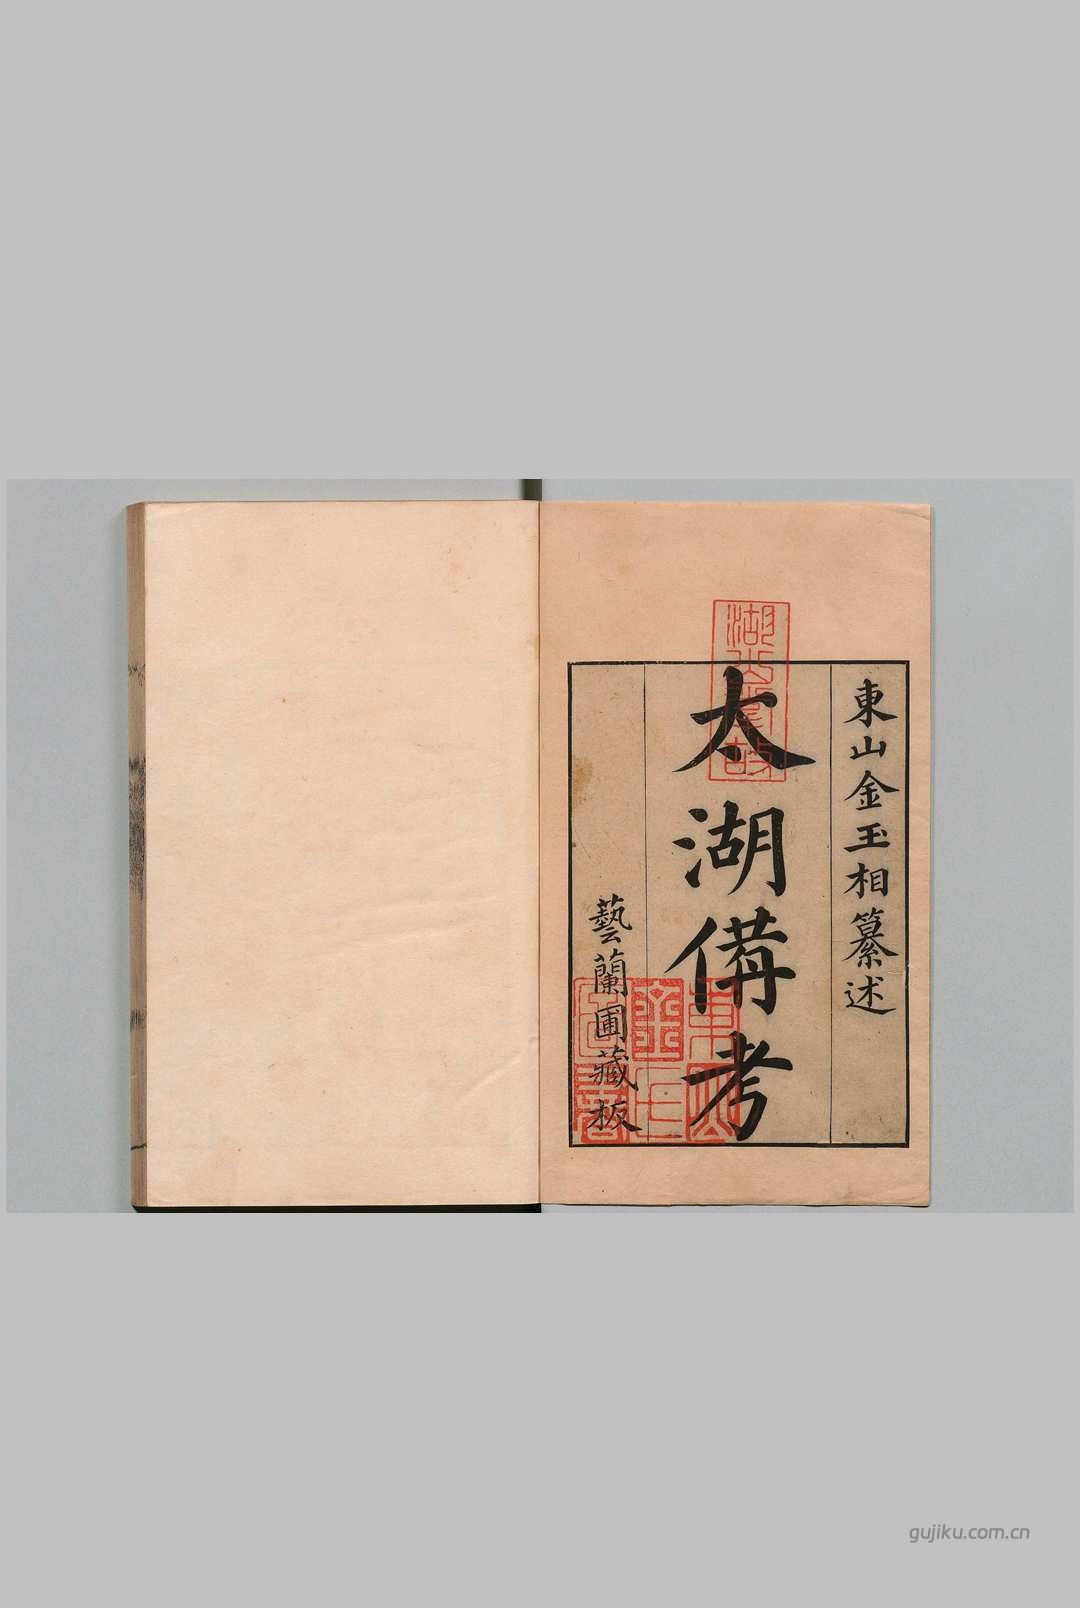 東山金玉相纂述
太湖備考
藝蘭圃藏板
gujiku.com.cn